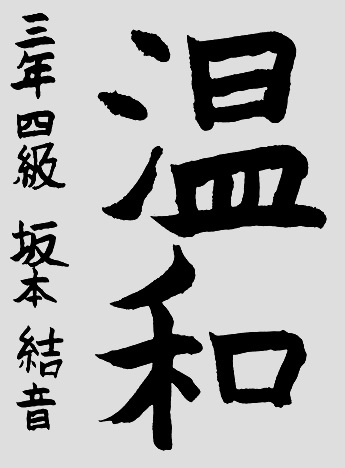 温和
三年四級 坂本結音